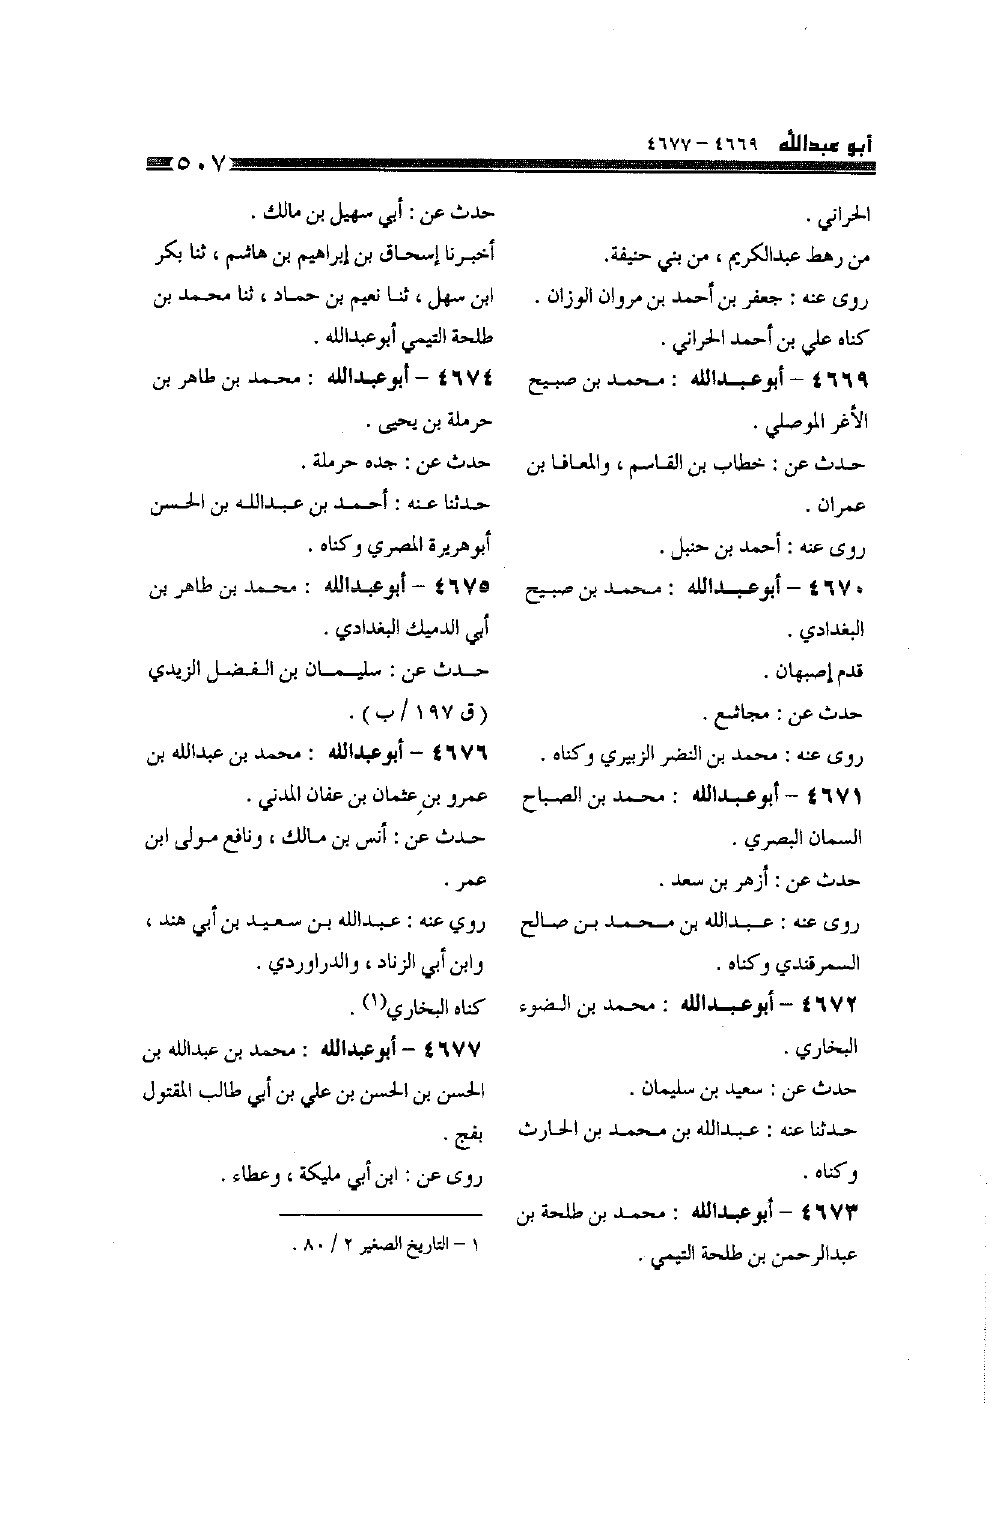 أبو عبدالله ٤٦٦٩ – ٤٦٧٧
٥٠٧
الحراني .
من رهط عبدالكريم ، من بني حنيفة.
روى عنه : جعفر بن أحمد بن مروان الوزان .
كناه علي بن أحمد الحراني .
٤٦٦٩ – أبوعبدالله : محمد بن صبيح
الأغر الموصلي .
حدث عن : خطاب بن القاسم ، والمعافا بن
عمران .
روى عنه : أحمد بن حنبل .
٤٦٧٠ – أبوعبدالله : محمد بن صبيح
البغدادي .
قدم إصبهان .
حدث عن : مجاشع .
روى عنه : محمد بن النضر الزبيري وكناه .
٤٦٧١ – أبوعبدالله : محمد بن الصباح
السمان البصري .
حدث عن : أزهر بن سعد .
روى عنه : عبدالله بن محمد بن صالح
السمرقندي وكناه .
٤٦٧٢ – أبوعبدالله : محمد بن الضوء
البخاري .
حدث عن : سعيد بن سليمان .
حدثنا عنه : عبدالله بن محمد بن الحارث
وكناه .
٤٦٧٣ – أبوعبدالله : محمد بن طلحة بن
عبدالرحمن بن طلحة التيمي .
حدث عن : أبي سهيل بن مالك .
أخبرنا إسحاق بن إبراهيم بن هاشم ، ثنا بكر
ابن سهل ، ثنا نعيم بن حماد ، ثنا محمد بن
طلحة التيمي أبوعبدالله .
٤٦٧٤ – أبوعبدالله : محمد بن طاهر بن
حرملة بن يحيى .
حدث عن : جده حرملة .
حدثنا عنه : أحمد بن عبدالله بن الحسن
أبوهريرة المصري وكناه .
٤٦٧٥ – أبوعبدالله : محمد بن طاهر بن
أبي الدميك البغدادي .
حدث عن : سليمان بن الفضل الزيدي
(ق ١٩٧ / ب) .
٤٦٧٦ – أبوعبدالله : محمد بن عبدالله بن
عمرو بن عثمان بن عفان المدني .
حدث عن : أنس بن مالك ، ونافع مولى ابن
عمر .
روي عنه : عبدالله بن سعيد بن أبي هند ،
وابن أبي الزناد ، والدراوردي .
كناه البخاري(١) .
٤٦٧٧ – أبوعبدالله : محمد بن عبدالله بن
الحسن بن الحسن بن علي بن أبي طالب المقتول
بفج .
روى عن : ابن أبي مليكة ، وعطاء .
١ – التاريخ الصغير ٢ / ٨٠ .